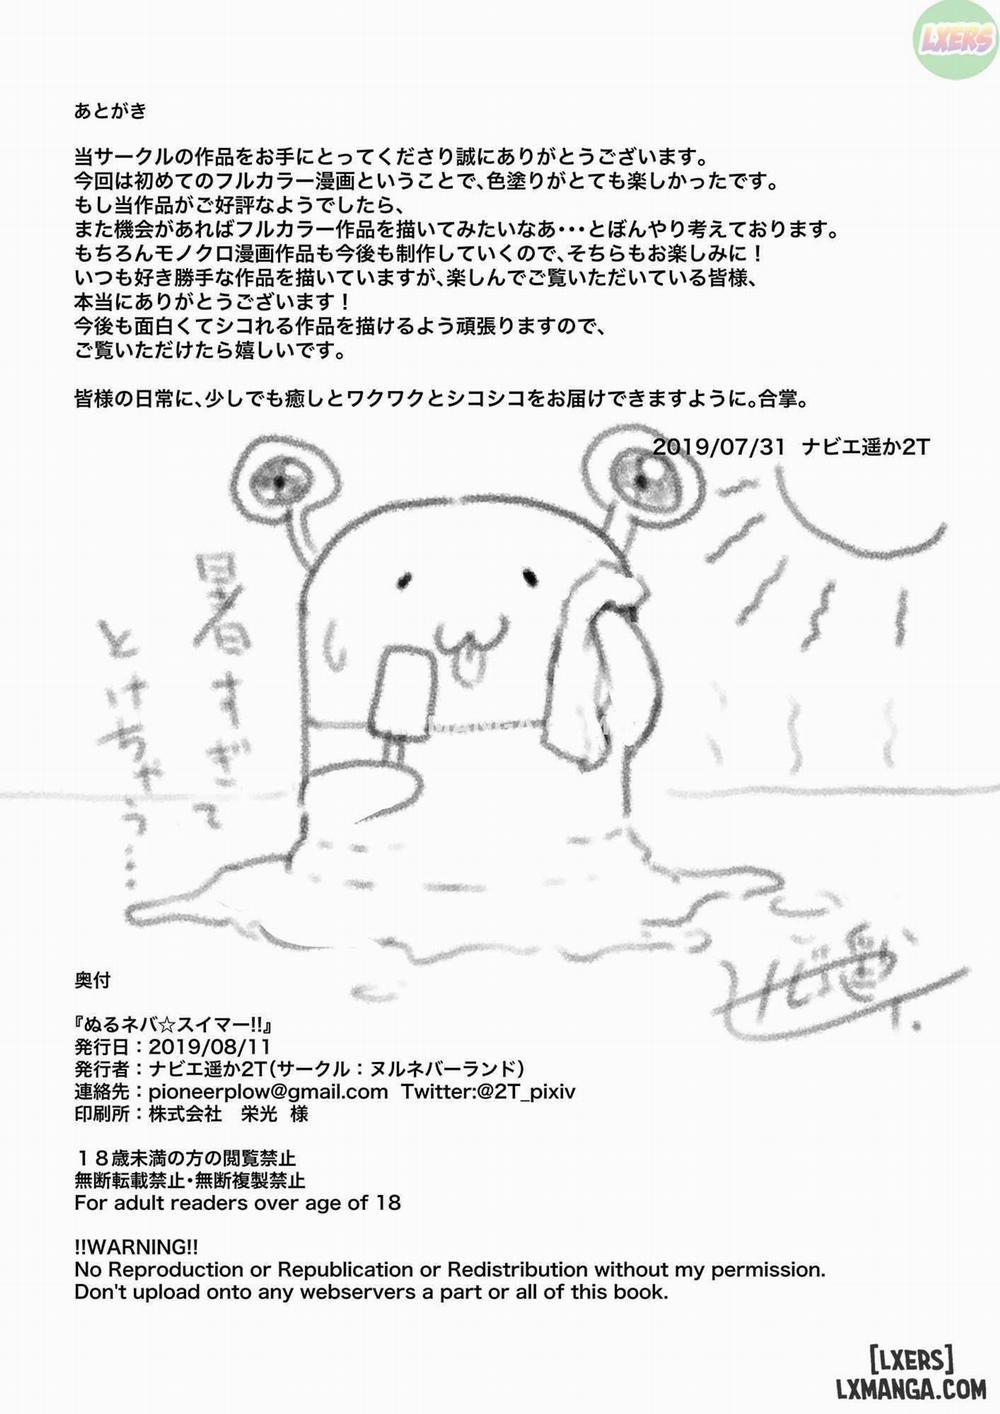 LXERS
あとがき
当サークルの作品をお手にとってくださり誠にありがとうございます。
今回は初めてのフルカラー漫画ということで、色塗りがとても楽しかったです。
もし当作品がご好評なようでしたら、
また機会があればフルカラー作品を描いてみたいなあ・・・とぼんやり考えております。
もちろんモノクロ漫画作品も今後も制作していくので、そちらもお楽しみに！
いつも好き勝手な作品を描いていますが、楽しんでご覧いただいている皆様、
本当にありがとうございます！
今後も面白くてシコれる作品を描けるよう頑張りますので、
ご覧いただけたら嬉しいです。
皆様の日常に、少しでも癒しとワクワクとシコシコをお届けできますように。合掌。
2019/07/31 ナビエ遥か2T
暑すぎて
とけちゃう…
MANGA
ナビエ遥か
2T.
奥付
『ぬるネバ☆スイマー!!』
発行日：2019/08/11
発行者：ナビエ遥か2T（サークル：ヌルネバーランド）
連絡先：pioneerplow@gmail.com Twitter:@2T_pixiv
印刷所：株式会社 栄光 様
１８歳未満の方の閲覧禁止
無断転載禁止・無断複製禁止
For adult readers over age of 18
!!WARNING!!
No Reproduction or Republication or Redistribution without my permission.
Don't upload onto any webservers a part or all of this book.
[LXERS]
LXMANGA.COM